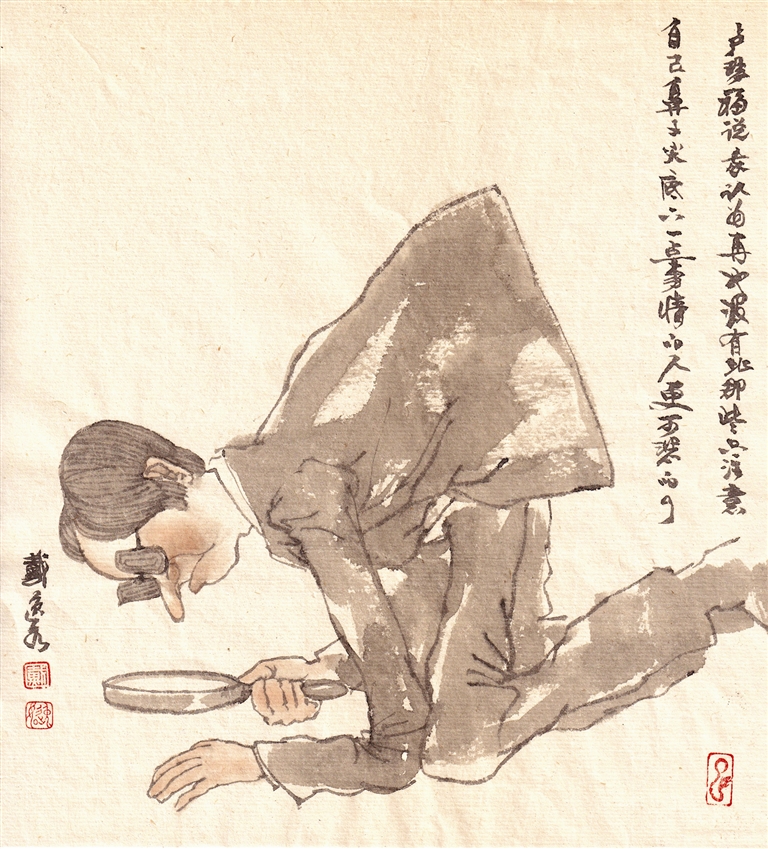 卢瑟福说我认为再也没有比那些只注意
自己鼻子尖底下一点事情的人更可悲的了
戴